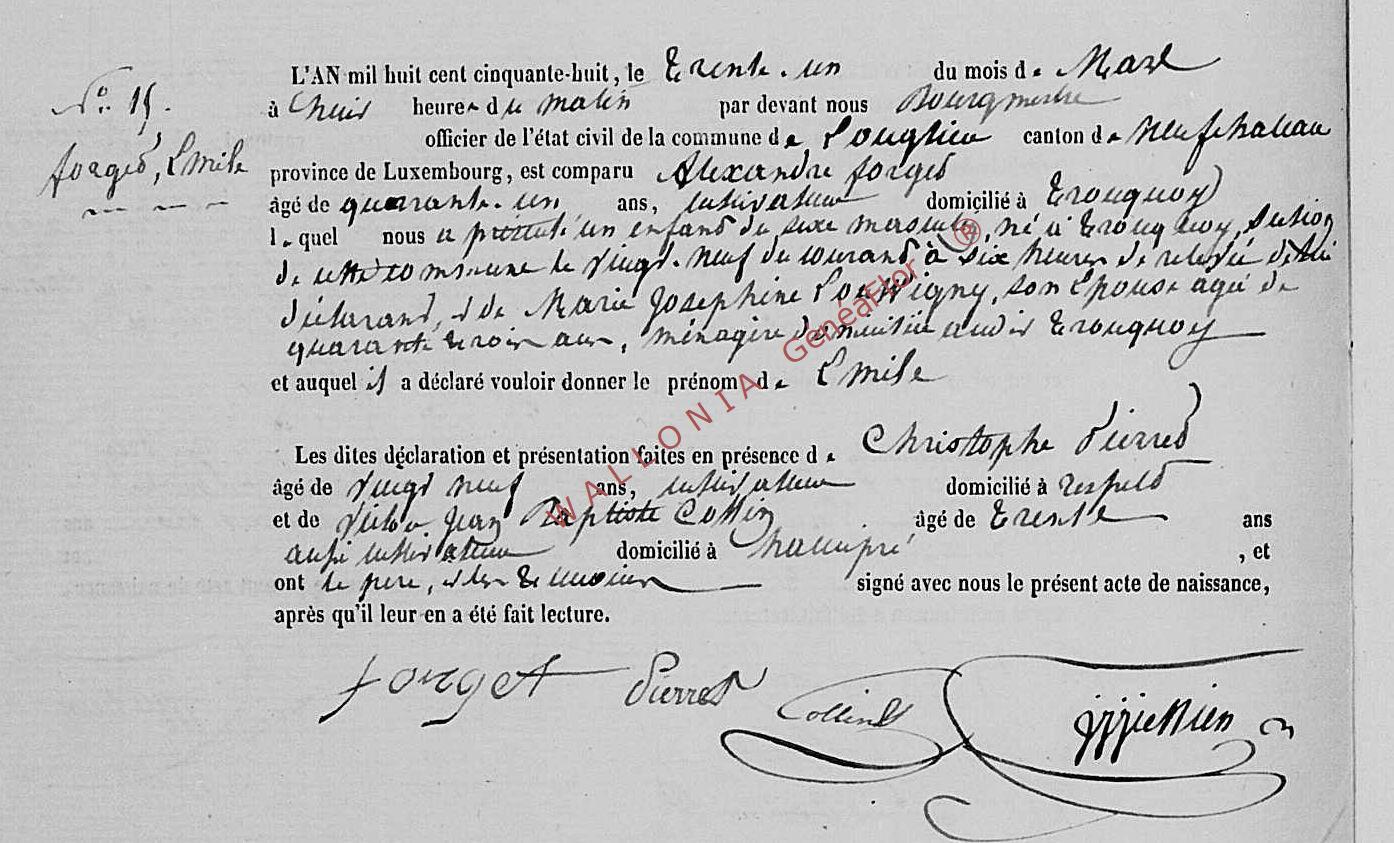 L'AN mil huit cent cinquante-huit, le Trente-un du mois de Mars
N° 15.
à heures du matin par devant nous Bourgmestre
officier de l'état civil de la commune de Longlier canton de Neufchateau
forget, Emile
province de Luxembourg, est comparu Alexandre forget
âgé de quarante-un ans, cultivateur domicilié à Tronquoy
lequel nous a présenté un enfant du sexe masculin, né à Tronquoy, section
de cette commune le vingt-neuf du courant à six heures de relevée de lui
déclarant, et de Marie Josephine son Epouse agée de
quarante trois ans, ménagère domiciliée audit Tronquoy
et auquel il a déclaré vouloir donner le prénom de Emile
WALLONIA GeneaFlor ®
Les dites déclaration et présentation faites en présence de Christophe Pierret
âgé de vingt neuf ans, cultivateur domicilié à respelt
et de Jean Baptiste Collin âgé de Trente ans
aussi cultivateur domicilié à hamipré , et
ont le père, et les témoins signé avec nous le présent acte de naissance,
après qu'il leur en a été fait lecture.
forget Pierret Collin